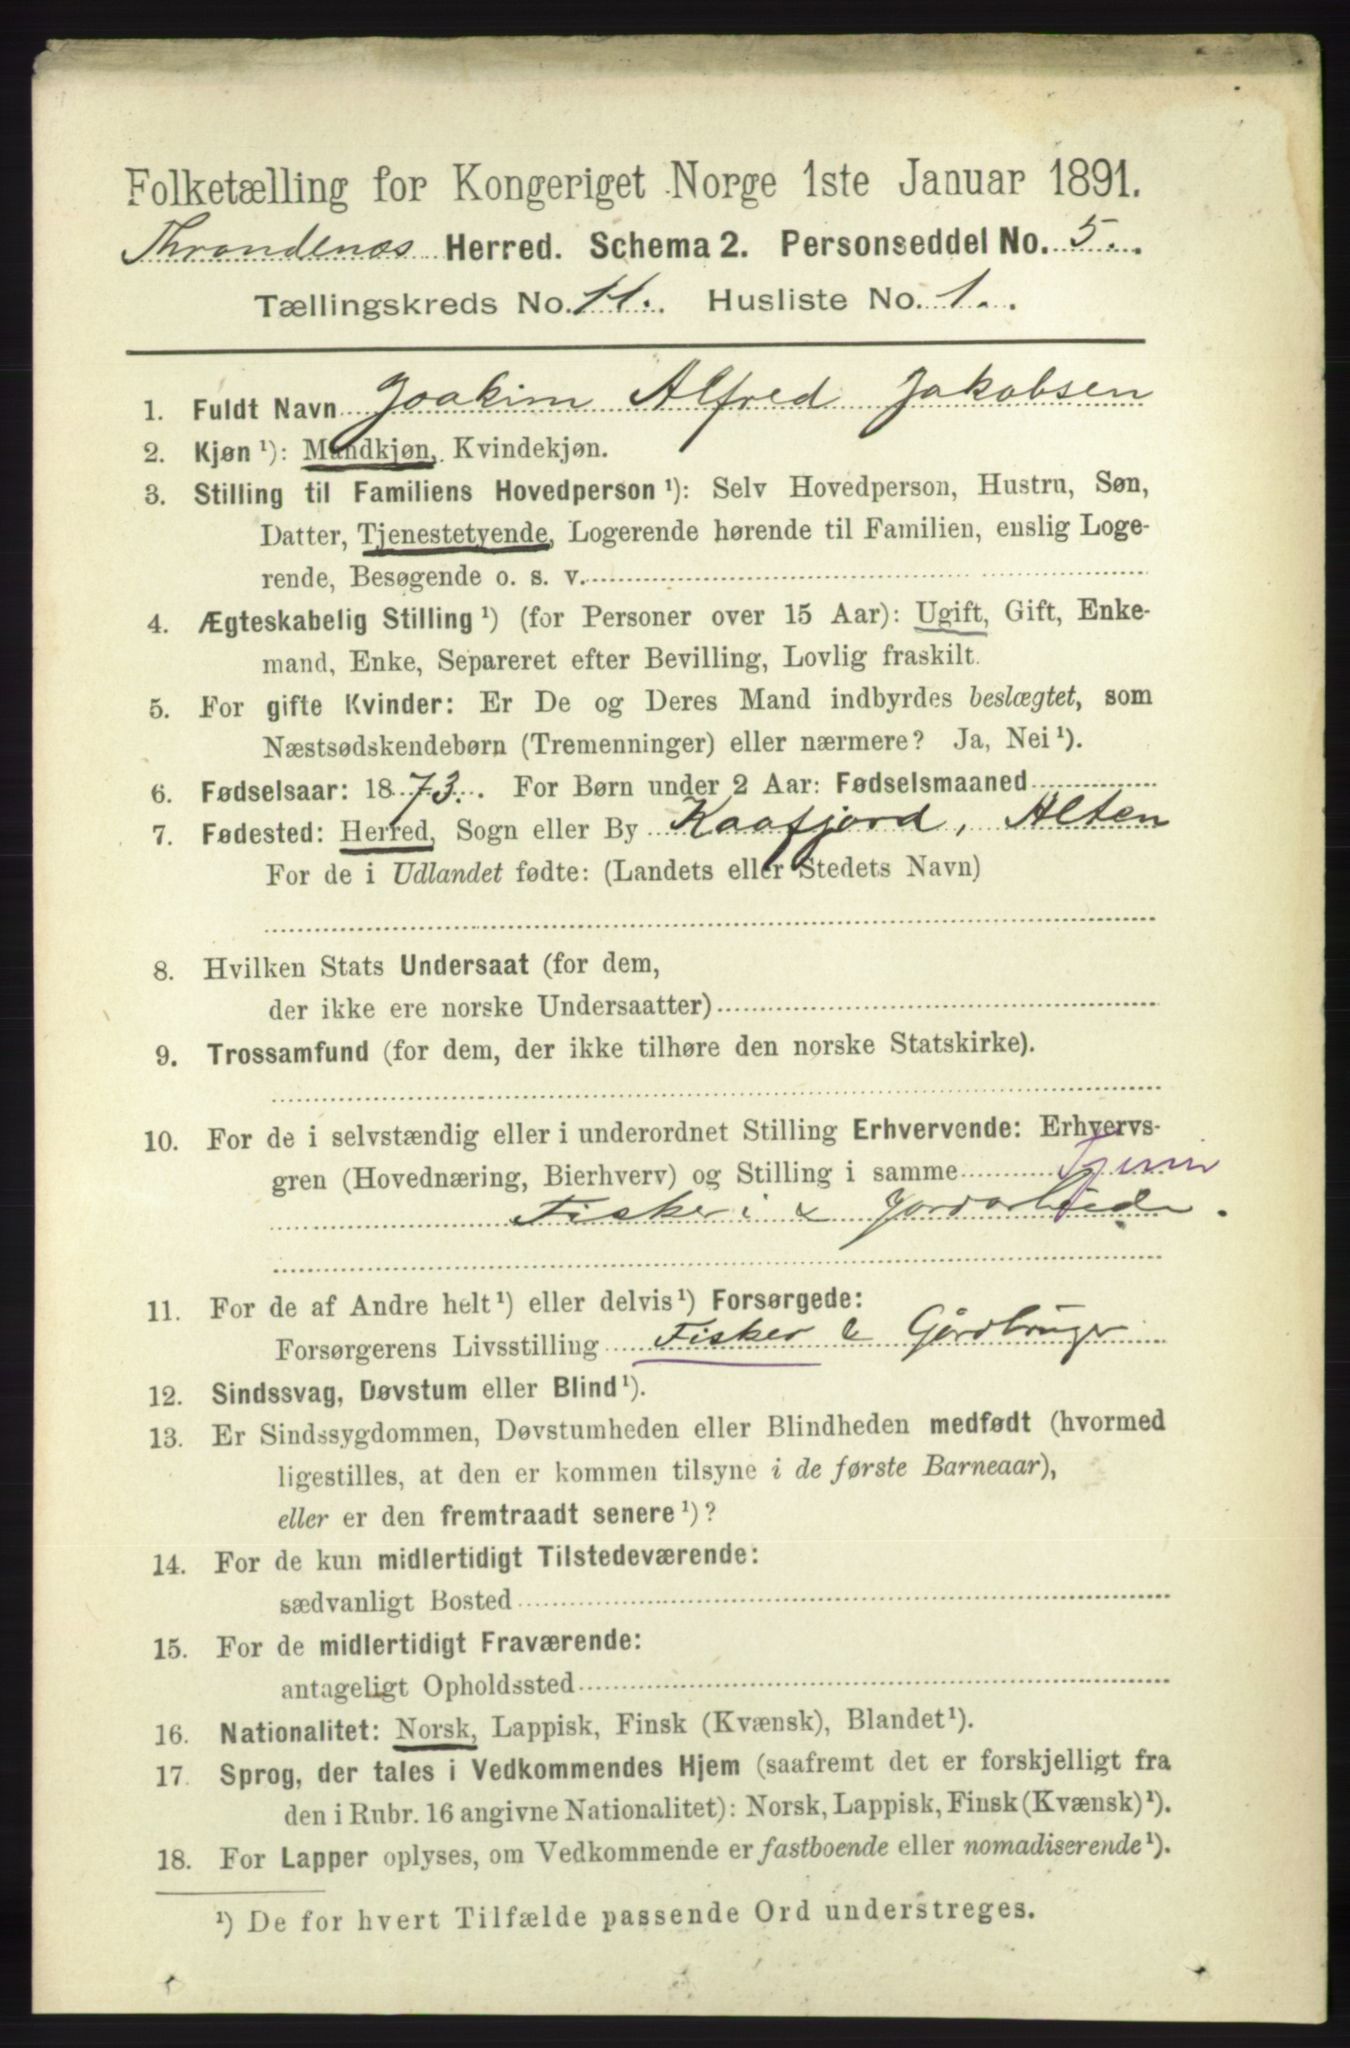 Folketælling for Kongeriget Norge 1ste Januar 1891.
Throndenæs Herred. Schema 2. Personseddel No. 5.
Tællingskreds No. 11. Husliste No. 1.
1. Fuldt Navn Joakim Alfred Jakobsen
2. Kjøn ¹): Mandkjøn, Kvindekjøn.
3. Stilling til Familiens Hovedperson ¹): Selv Hovedperson, Hustru, Søn,
Datter, Tjenestetyende, Logerende hørende til Familien, enslig Loge-
rende, Besøgende o. s. v.
4. Ægteskabelig Stilling ¹) (for Personer over 15 Aar): Ugift, Gift, Enke-
mand, Enke, Separeret efter Bevilling, Lovlig fraskilt.
5. For gifte Kvinder: Er De og Deres Mand indbyrdes beslægtet, som
Næstsødskendebørn (Tremenninger) eller nærmere? Ja, Nei ¹).
6. Fødselsaar: 1873. For Børn under 2 Aar: Fødselsmaaned
7. Fødested: Herred, Sogn eller By Kaafjord, Alten
For de i Udlandet fødte: (Landets eller Stedets Navn)
8. Hvilken Stats Undersaat (for dem,
der ikke ere norske Undersaatter)
9. Trossamfund (for dem, der ikke tilhøre den norske Statskirke).
10. For de i selvstændig eller i underordnet Stilling Erhvervende: Erhvervs-
gren (Hovednæring, Bierhverv) og Stilling i samme
Fiskeri & Jordarbeide.
11. For de af Andre helt ¹) eller delvis ¹) Forsørgede:
Forsørgerens Livsstilling Fisker & Gårdbruger
12. Sindssvag, Døvstum eller Blind ¹).
13. Er Sindssygdommen, Døvstumheden eller Blindheden medfødt (hvormed
ligestilles, at den er kommen tilsyne i de første Barneaar),
eller er den fremtraadt senere ¹)?
14. For de kun midlertidigt Tilstedeværende:
sædvanligt Bosted
15. For de midlertidigt Fraværende:
antageligt Opholdssted
16. Nationalitet: Norsk, Lappisk, Finsk (Kvænsk), Blandet ¹).
17. Sprog, der tales i Vedkommendes Hjem (saafremt det er forskjelligt fra
den i Rubr. 16 angivne Nationalitet): Norsk, Lappisk, Finsk (Kvænsk) ¹).
18. For Lapper oplyses, om Vedkommende er fastboende eller nomadiserende ¹).
¹) De for hvert Tilfælde passende Ord understreges.